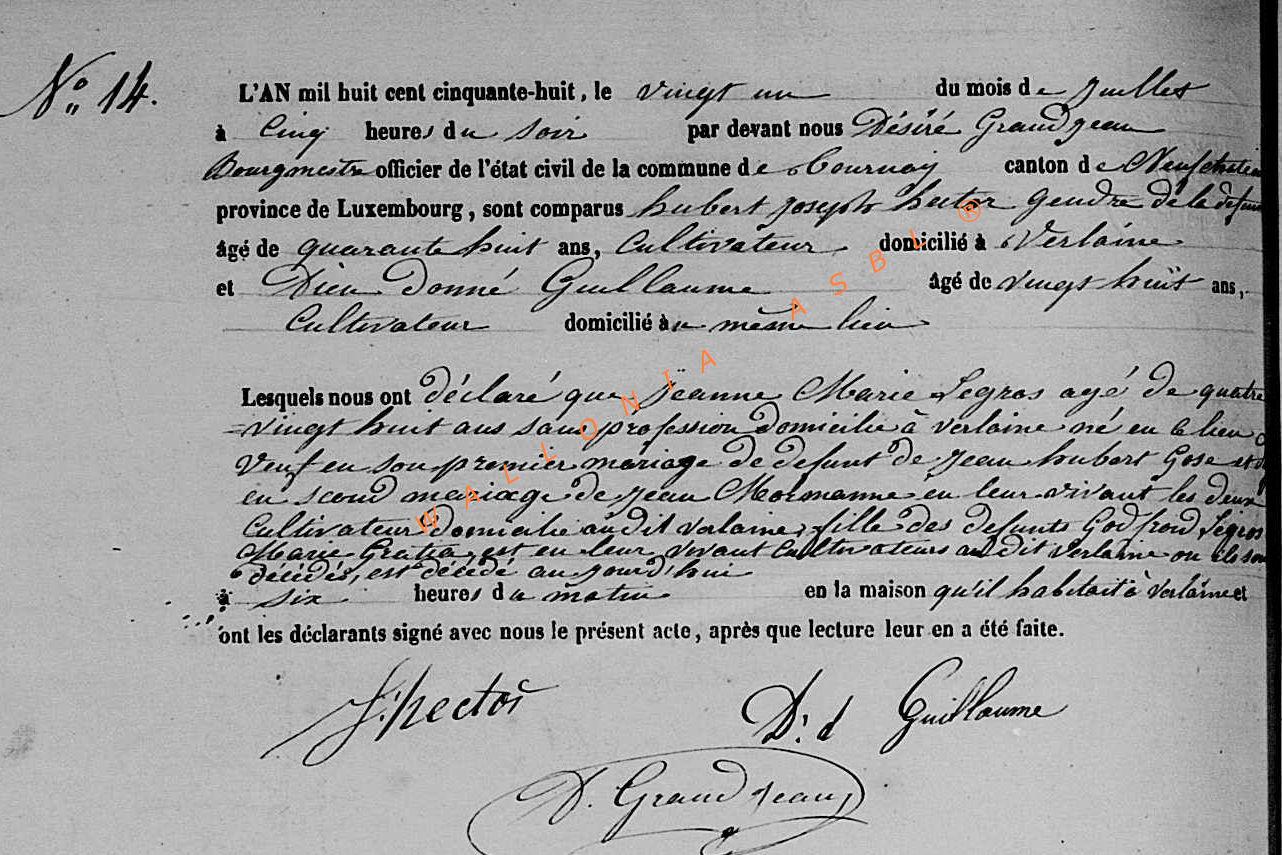 No 14.
L'AN mil huit cent cinquante-huit, le vingt un du mois de Juillet
à Cinq heures du soir par devant nous Désiré Grandjean
Bourgmestre officier de l'état civil de la commune de Tournay canton de Neufchateau
province de Luxembourg, sont comparus hubert joseph hector gendre de la defunte
âgé de quarante huit ans, Cultivateur domicilié à Verlaine
et Dieu Donné Guillaume âgé de vingt huit ans,
Cultivateur domicilié au même lieu
Lesquels nous ont déclaré que jeanne Marie Legros agé de quatre
=vingt huit ans sans profession domicilié à verlaine né en ce lieu
Veuf en son premier mariage de defunt de jean hubert Gose et
en scond mariage de jean Mormanne en leur vivant les deux
Cultivateur domicilie audit verlaine, fille des defunts Godfroid Legros
Marie en leur vivant Cultivateurs audit verlaine ou ils son
décédés, est décédé aujourd'hui
à six heures du matin en la maison qu'il habitait à verlaine et
ont les déclarants signé avec nous le présent acte, après que lecture leur en a été faite.
hector D. d Guillaume
D. Grandjean
WALLONIA ASBL ®